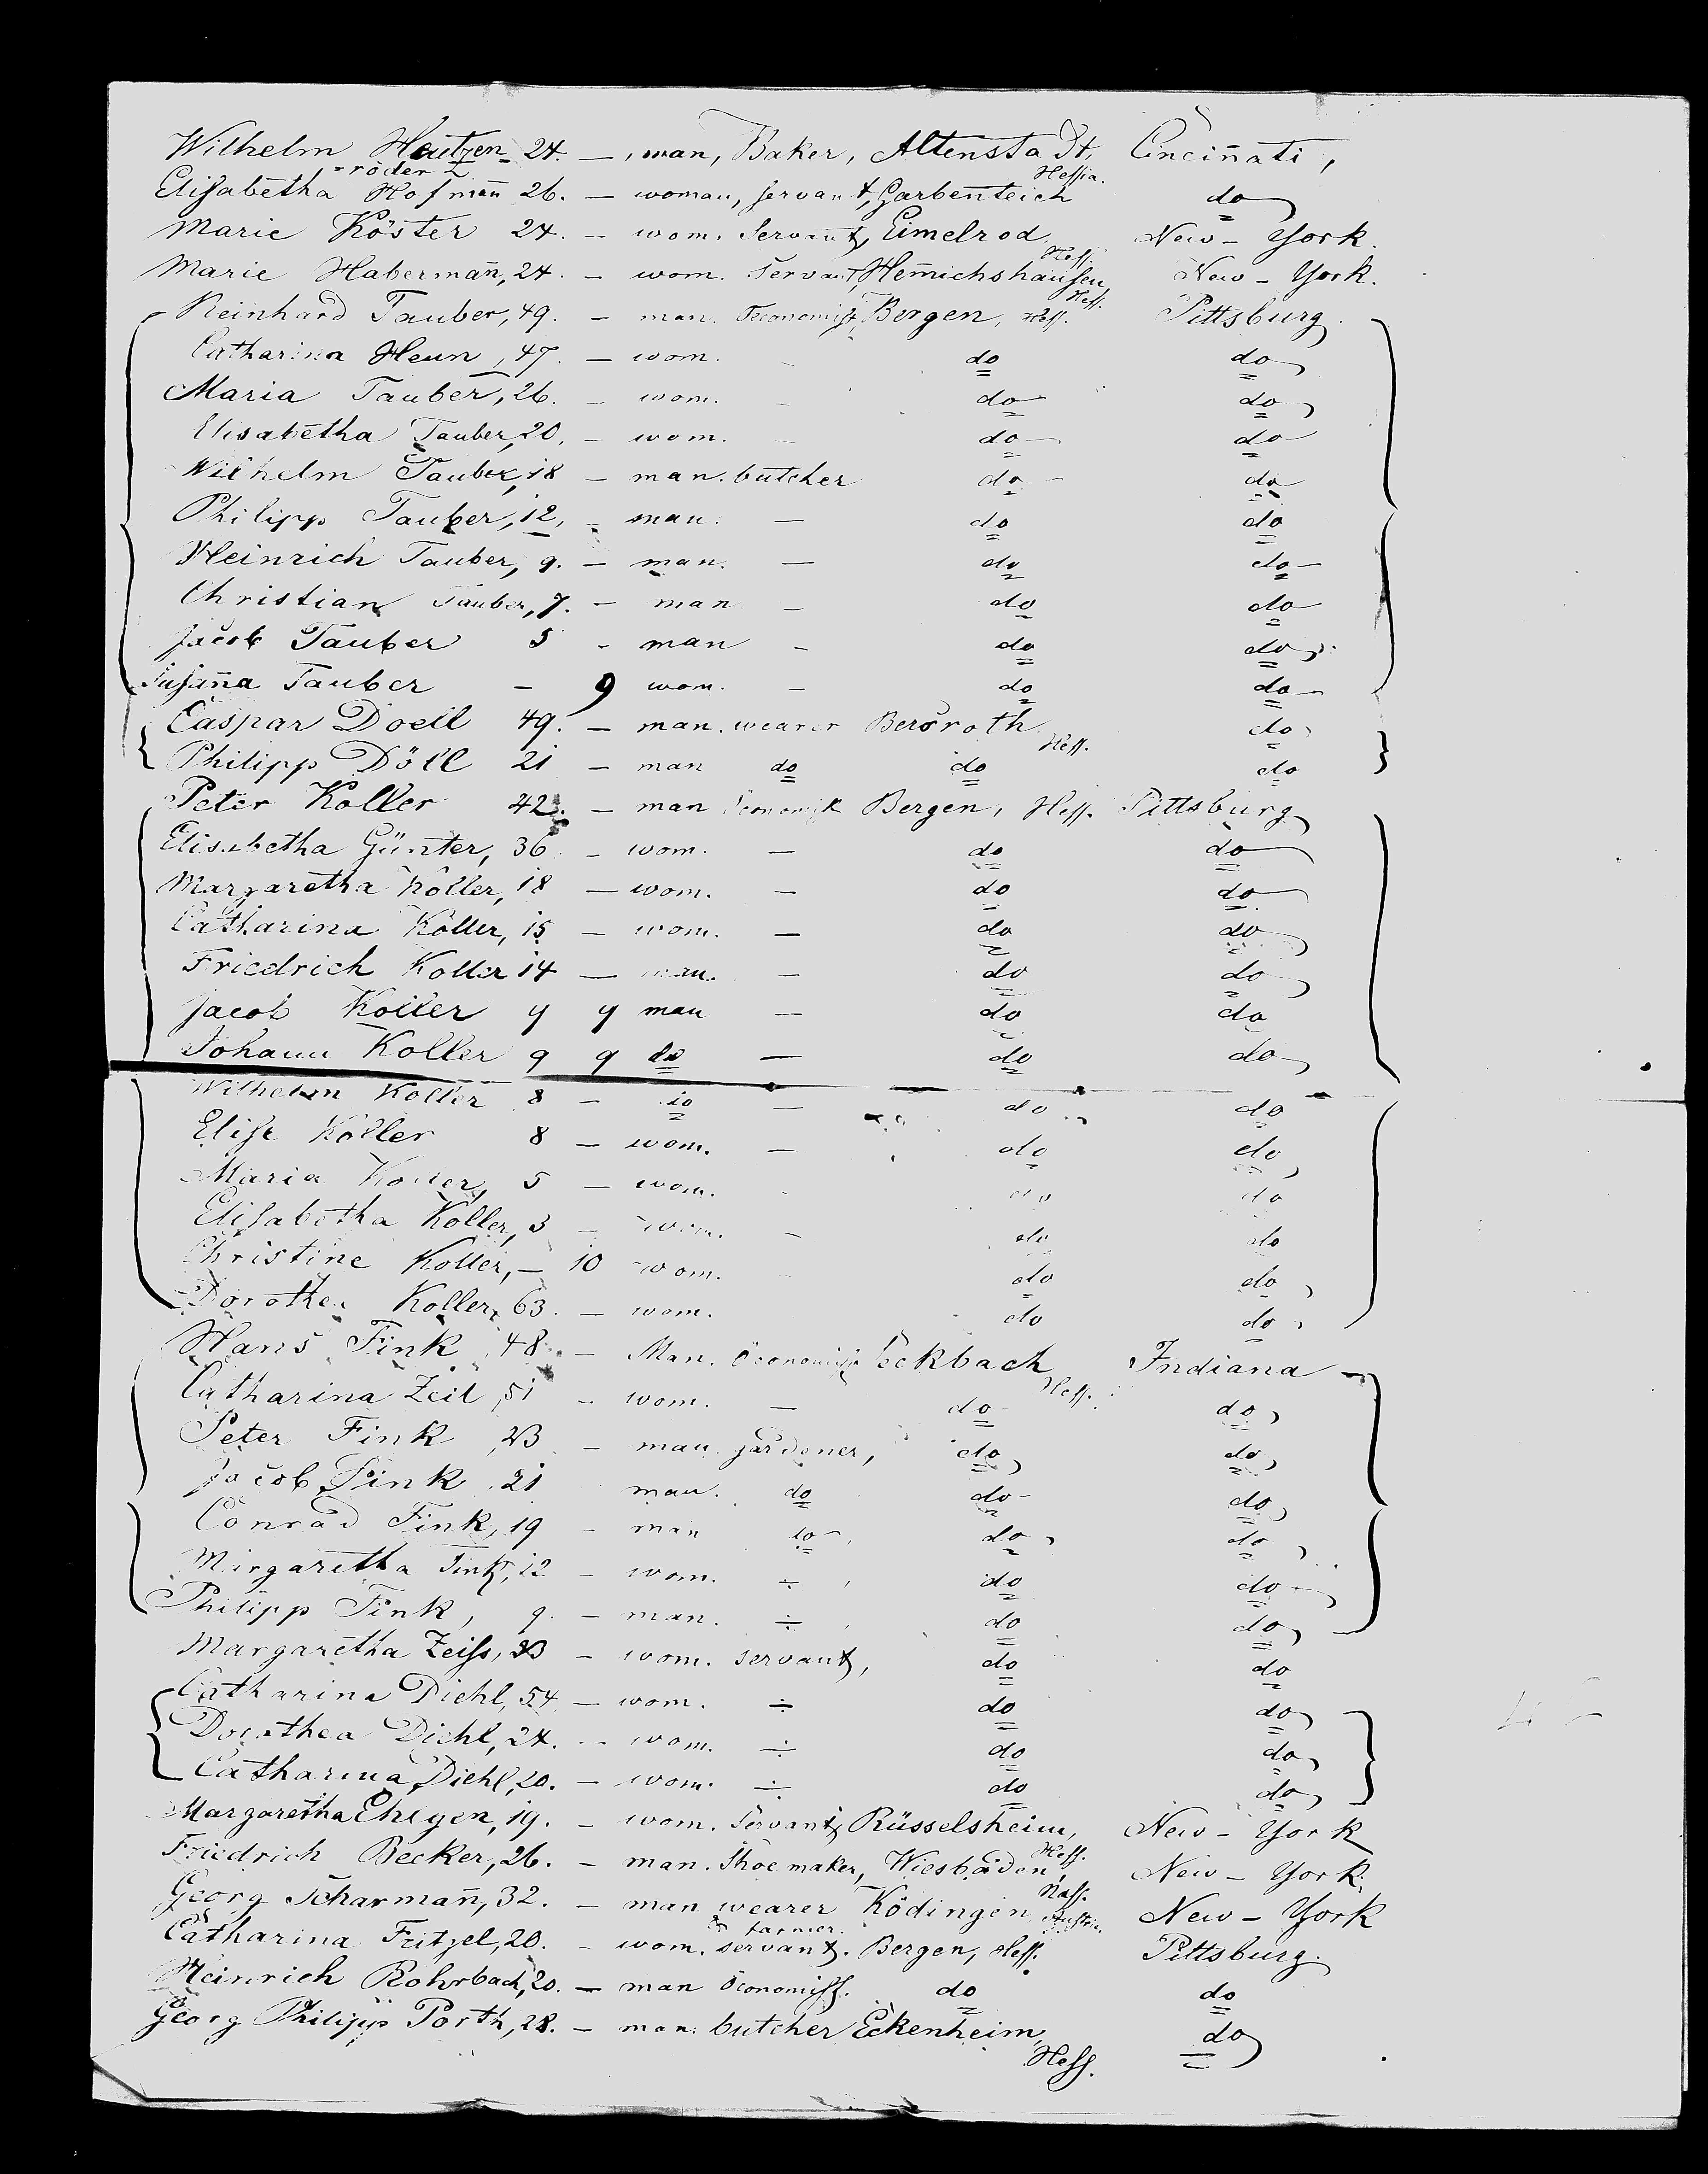 Wilhelm Heutzen= 24. — man, Baker, Altenstadt, Hessia. Cincin̄ati,
=röder
Elisabetha Hofman̄ 26. — woman, servant, Garbenteich do
Marie Köster 24. — wom. Servant, Eimelrod Hess. New-York.
Marie Haberman̄, 24. — wom. Servant, Hemichshausen Hess. New-York.
Reinhard Tauber, 49. — man. Oeconomist, Bergen, Hess. Pittsburg.
Catharina Heun, 47. — wom. do do
Maria Tauber, 26. — wom. — do do
Elisabetha Tauber, 20. — wom. — do do
Wilhelm Tauber, 18 — man. butcher do do
Philipp Tauber, 12, — man. — do do
Heinrich Tauber, 9. — man. — do do
Christian Tauber, 7. — man — do do
Jacob Tauber 5 — man — do do
Susan̄a Tauber — 9 wom. — do do
Caspar Doell 49. — man. wearer Bersroth Hess. do
Philipp Döll 21 — man do do do
Peter Koller 42. — man Oeconomist Bergen, Hess. Pittsburg
Elisabetha Günter, 36 — wom. — do do
Margaretha Koller, 18 — wom. — do do
Catharina Koller, 15 — wom. — do do
Friedrich Koller 14 — man. — do do
Jacob Koller 9 9 man — do do
Johann Koller 9 9 do — do do
Wilhelm Koller 8 — do — do do
Elise Koller 8 — wom. — do do
Maria Koller, 5 — wom. - do do
Elisabetha Koller, 3 — wom. - do do
Christine Koller, — 10 wom. do do
Dorothea Koller, 63. — wom. do do
Hans Fink 48. — Man. Oeconomist Eckbach Hess. Indiana
Catharina Zeil, 51 — wom. — do do
Peter Fink, 23 — man. gardener, do do
Jacob Fink, 21 man. do do do
Conrad Fink, 19 — man do do do
Margaretha Fink, 12 — wom. ÷ do do
Philipp Fink, 9. — man. ÷ do do
Margaretha Zeiss, 23 — wom. servant, do do
Catharina Diehl, 54 — wom. ÷ do do
Dorothea Diehl, 24. — wom. ÷ do do
Catharina Diehl, 20. — wom. ÷ do do
Margaretha Ehrgen, 19. — wom. Servant, Rüsselsheim, Hess. New-York
Friedrich Becker, 26. — man. Shoemaker, Wiesbaden, Nass. New-York
Georg Scharman̄, 32. — man wearer Ködingen New-York
& farmer.
Catharina Fritzel, 20. — wom. servant. Bergen, Hess. Pittsburg.
Heinrich Rohrbach, 20. — man Oconomist. do do
Georg Philipp Porth, 28. — man. butcher Eckenheim, Hess. do